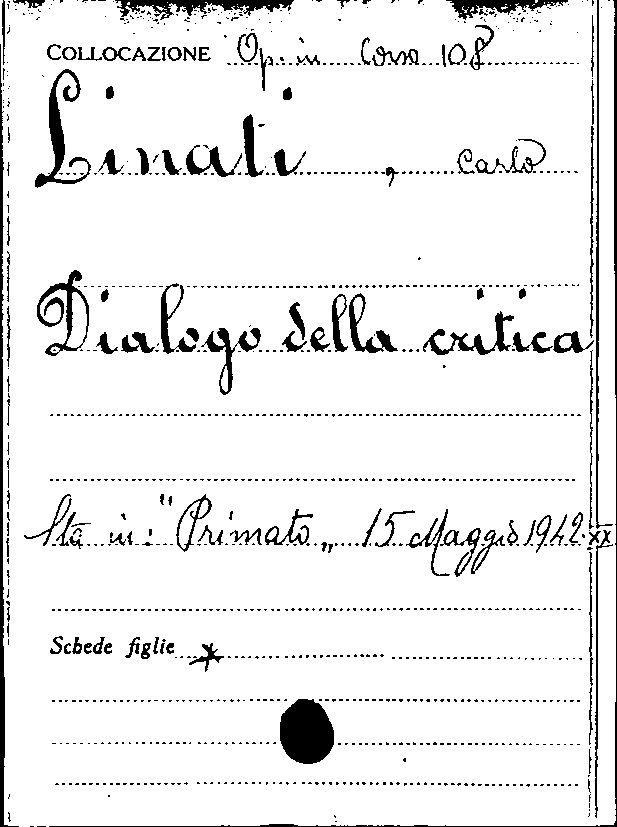 COLLOCAZIONE Op. in Corso 108
Linati, Carlo
Dialogo della critica
Sta in: "Primato„ 15 Maggio 1942.XX
Schede figlie